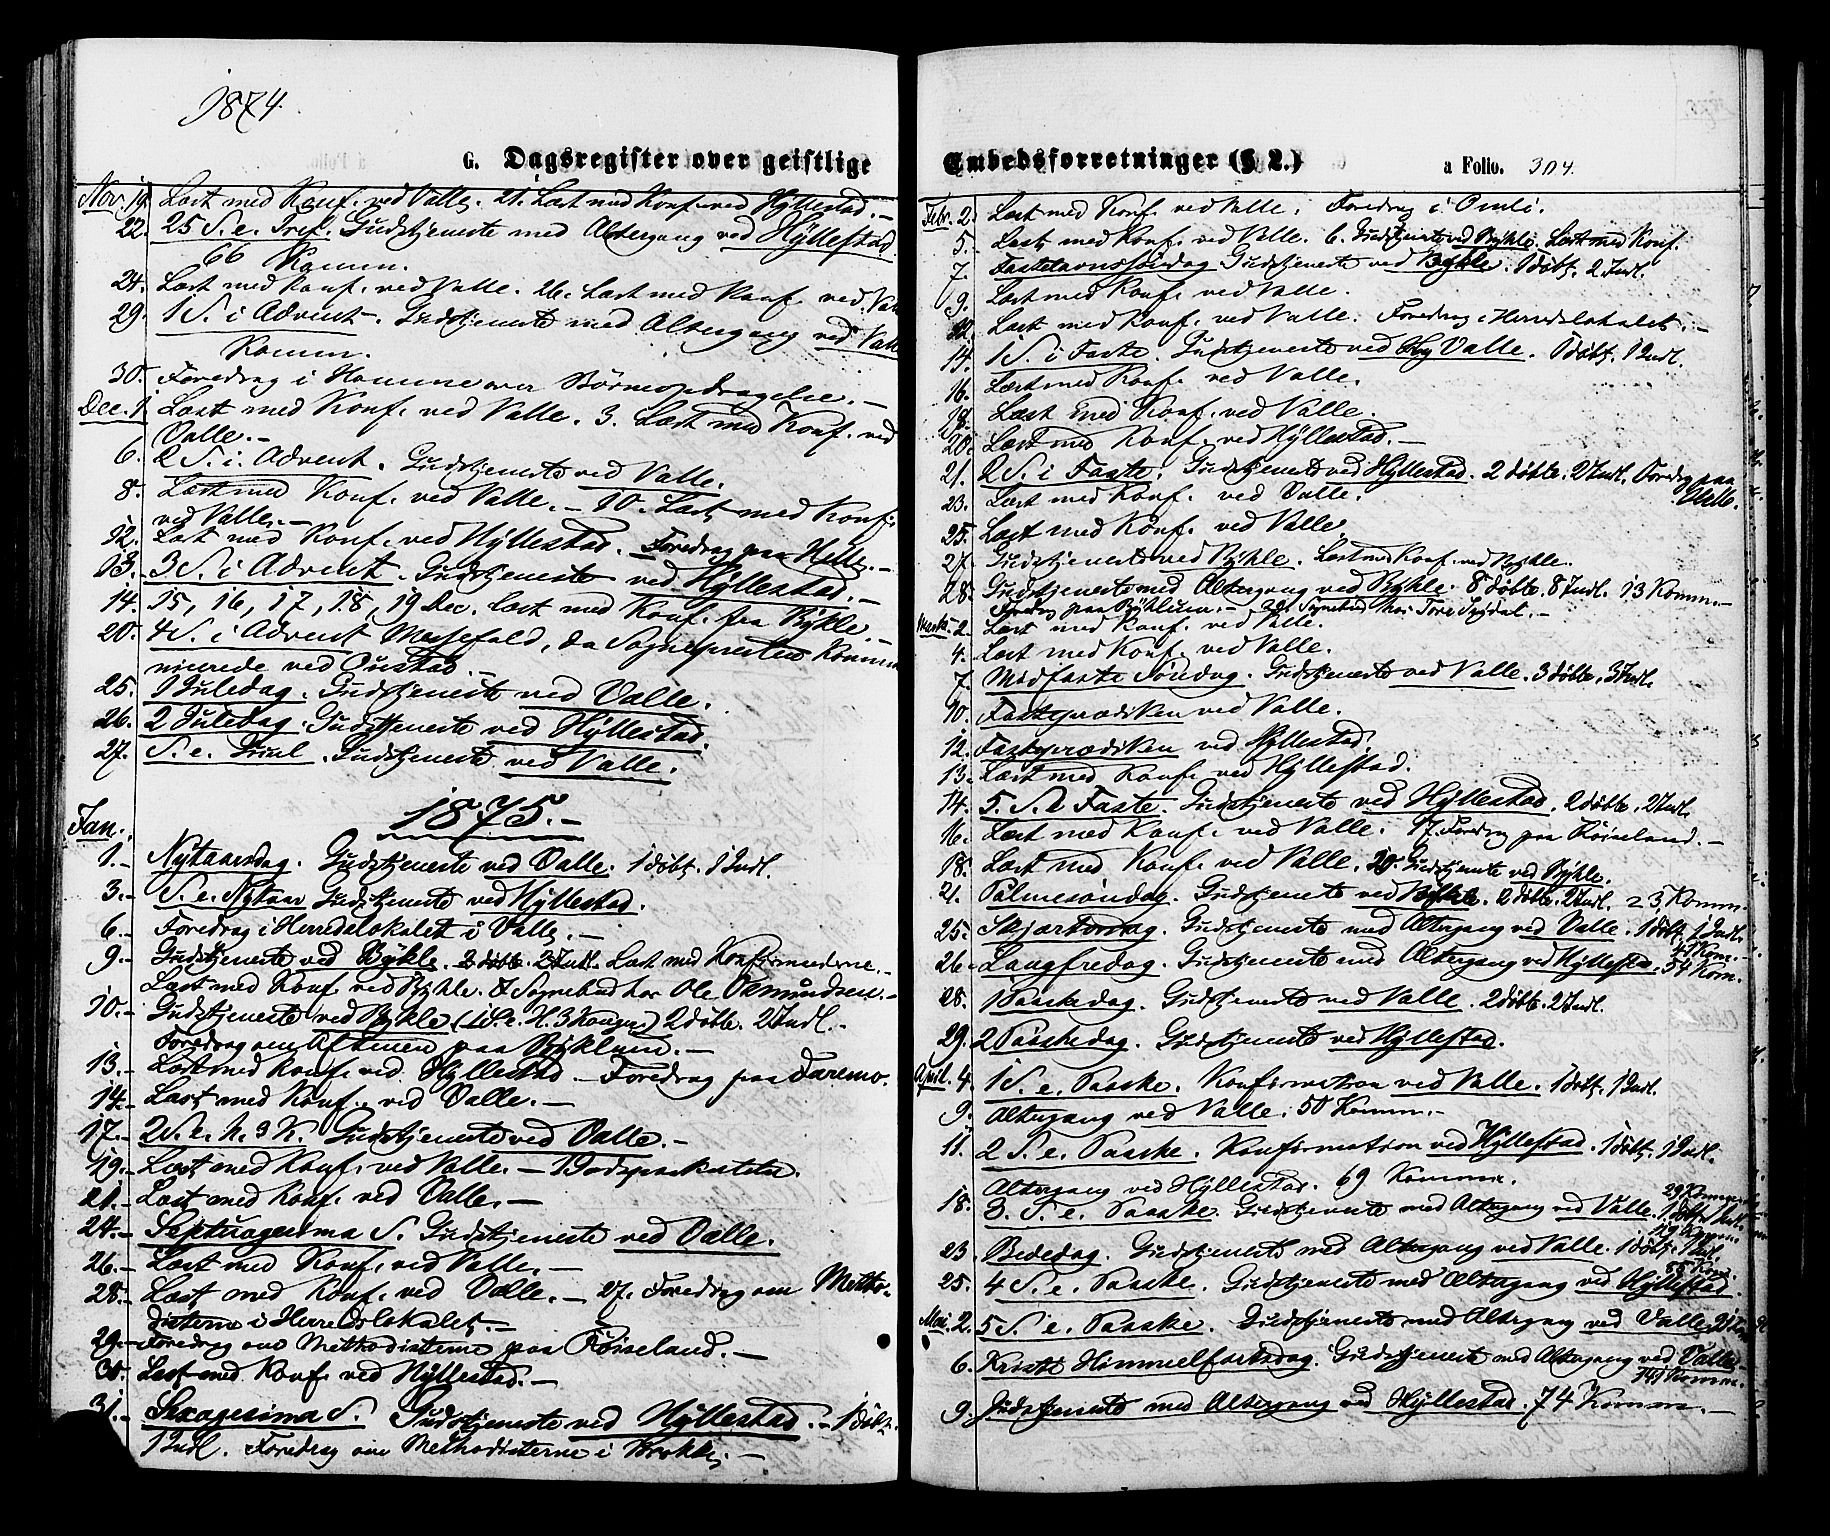 1874.
G. Dagsregister over geistlige
Nov. 19. Læst med Konf. ved Valle. 21. Læst med Konf. ved Hyllestad. –
22. 25 S. e. Tref. Gudstjeneste med Altergang ved Hyllestad
66 Komm.
24. Læst med Konf. ved Valle. 26. Læst med Konf. ved Valle
29. 1 S. i Advent. Gudstjeneste med Altergang ved Valle
Komm.
30. Foredrag i Homme over Børneopdragelse. –
Dec. 1. Læst med Konf. ved Valle. 3. Læst med Konf. ved
Valle. –
6. 2 S. i Advent. Gudstjeneste ved Valle.
8. Læst med Konf. ved Valle. – 10. Læst med Konf.
ved Valle. –
12. Læst med Konf. ved Hyllestad. Foredrag paa Helle. –
13. 3 S. i Advent. Gudstjeneste ved Hyllestad. –
14. 15, 16, 17, 18, 19 Dec. læst med Konf. fra Bykle. –
20. 4 S. i Advent Messefald, da Sognepresten kommu
nicerede ved Oustad. –
25. 1 Juledag. Gudstjeneste ved Valle.
26. 2 Juledag. Gudstjeneste ved Hyllestad.
27. S. e. Juul. Gudstjeneste ved Valle.
1875. –
Jan.
1. – Nytaarsdag. Gudstjeneste ved Valle. 1 døbt. 1 Indl.
3. – S. e. Nytaar Gudstjeneste ved Hyllestad.
6. – Foredrag i Herredslokalet i Valle. –
9. – Gudstjeneste ved Bykle. 2 døbte. 2 Indl. Læst med Konfirmanderne. –
Læst med Konf. ved Bykle. & Sognebud hos Ole Osmundsen. –
10. – Gudstjeneste ved Bykle (1 S. e. H. 3 Konger) 2 døbte. 2 Indl. –
Foredrag om Aftenen paa Byklum. –
13. – Læst med Konf. ved Hyllestad – Foredrag paa Faremo.
14. – Læst med Konf. ved Valle. –
17. – 2 S. e. h. 3 K. Gudstjeneste ved Valle. –
19. – Læst med Konf. ved Valle. –
21. – Læst med Konf. ved Valle. –
24. – Septuagesima S. Gudstjeneste ved Valle.
26. – Læst med Konf. ved Valle. –
28. – Læst med Konf. ved Valle. – 27. Foredrag om Metho-
disterne i Herredslokalet. –
29. – Foredrag om Methodisterne paa Røiseland. –
30. Læst med Konf. ved Hyllestad. –
31. – Sexagesima S. Gudstjeneste ved Hyllestad. – 1 døbt.
1 Indl. Foredrag om Methodisterne i Brokke. –
Embedsforretninger (§ 2.)
a Folio. 304.
Febr. 2. Læst med Konf. ved Valle. Foredrag i Omli.
5. Læst med Konf. ved Valle. 6. Gudstjeneste ved Bykle. Læst med Konf.
7. Fastelavnssøndag Gudstjeneste ved Bykle. 1 døbt. 2 Indl.
9. Læst med Konf. ved Valle.
12. Læst med Konf. ved Valle. Foredrag i Herredslokalet. –
14. 1 S. i Faste. Gudstjeneste ved Valle. 1 døbt. 1 Indl.
16. Læst med Konf. ved Valle.
18. Læst med Konf. ved Valle.
20. Læst med Konf. ved Hyllestad. –
21. 2 S. i Faste. Gudstjeneste ved Hyllestad. 2 døbte. 2 Indl. Foredrag paa
23. Læst med Konf. ved Valle.
25. Læst med Konf. ved Valle.
27. Gudstjeneste ved Bykle. Læst med Konf. ved Bykle.
28. Gudstjeneste med Altergang ved Bykle. 8 døbte. 8 Indl. 13 Komm. –
Foredrag paa Byklum. – Sognebud hos Tore –
Marts 2. Læst med Konf. ved Valle.
4. Læst med Konf. ved Valle.
7. Midfaste Søndag. Gudstjeneste ved Valle. 3 døbte. 3 Indl.
10. Fasteprædiken ved Valle.
12. Fasteprædiken ved Hyllestad.
13. Læst med Konf. ved Hyllestad.
14. 5. S. i Faste. Gudstjeneste ved Hyllestad. 2 døbte. 2 Indl.
16. Læst med Konf. ved Valle. 17. Foredrag paa Røiseland. –
18. Læst med Konf. ved Valle. 20. Gudstjeneste ved Bykle.
21. Palmesøndag. Gudstjeneste ved Bykle. 2 døbte. 2 Indl. 23 Komm.
25. Skjærtorsdag. Gudstjeneste med Altergang ved Valle. 1 døbt. 1 Indl.
47 Kom.
26. Langfredag. Gudstjeneste med Altergang ved Hyllestad. 54 Kom.
28. 1 Paaskedag. Gudstjeneste ved Valle. 2 døbte. 2 Indl.
29. 2 Paaskedag. Gudstjeneste ved Hyllestad.
April. 4. 1 S. e. Paaske. Konfirmation ved Valle. 1 døbt. 1 Indl.
9. Altergang ved Valle. 50 Komm. –
11. 2 S. e. Paaske. Konfirmation ved Hyllestad. 1 døbt. 1 Indl.
Altergang ved Hyllestad. 69 Komm.
29 Komm.
18. 3. S. e. Paaske. Gudstjeneste med Altergang ved Valle. 1 døbt. 1 Indl.
23. Bededag. Gudstjeneste med Altergang ved Valle. 1 døbt. 1 Indl.
55 Kom.
25. 4 S. e. Paaske. Gudstjeneste med Altergang ved Hyllestad.
Mai. 2. 5 S. e. Paaske. Gudstjeneste med Altergang ved Valle.
6. Kristi Himmelfartsdag. Gudstjeneste med Altergang ved Valle –
141 Komm.
9. Gudstjeneste med Altergang ved Hyllestad. 74 Komm. –